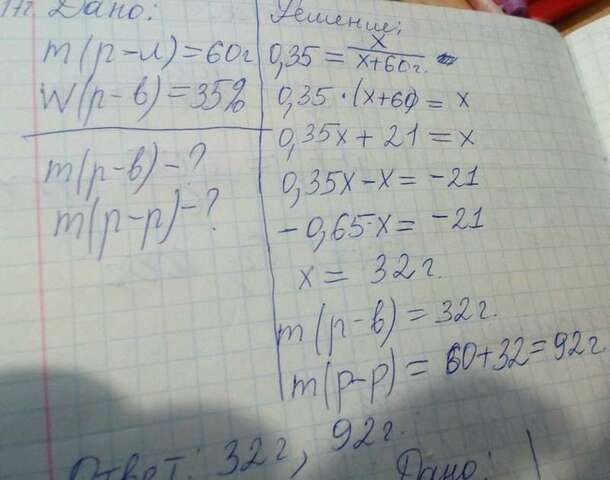 Дано:
m(р-л)=60г
W(р-в)=35%
m(р-в)-?
m(р-р)-?
Решение:
0,35 = x/x+60г.
0,35·(x+60)=x
0,35x+21=x
0,35x-x=-21
-0,65·x=-21
x= 32г.
m(р-в)=32г.
m(р-р)=60+32=92г.
Ответ: 32г, 92г.
Дано: